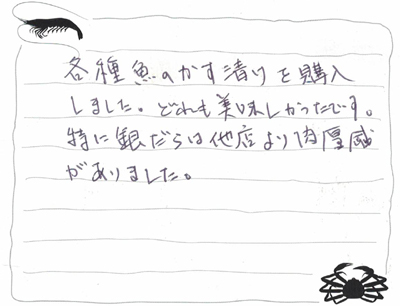 各種魚のかす漬けを購入
しました。どれも美味しかったです。
特に銀だらは他店より肉厚感
がありました。